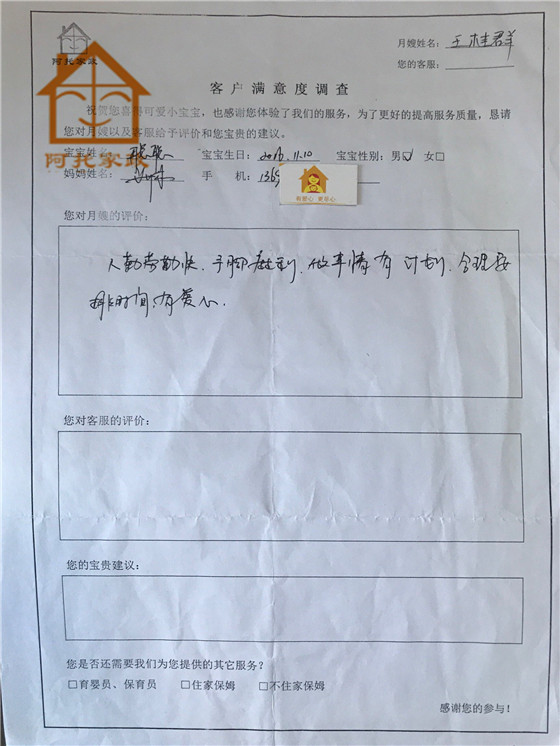 阿托家政
月嫂姓名：王桂群
您的客服：
客户满意度调查
祝贺您喜得可爱小宝宝，也感谢您体验了我们的服务，为了更好的提高服务质量，恳请
您对月嫂以及客服给予评价和您宝贵的建议。
阿托家政
宝宝姓名： 宝宝生日：11.10 宝宝性别：男☑ 女□
妈妈姓名： 手 机：136
有爱心 更安心
您对月嫂的评价：
人勤劳勤快，手脚麻利，做事情有计划，合理安
排时间，有爱心．
您对客服的评价：
您的宝贵建议：
您是否还需要我们为您提供的其它服务？
□育婴员、保育员 □住家保姆 □不住家保姆
感谢您的参与！